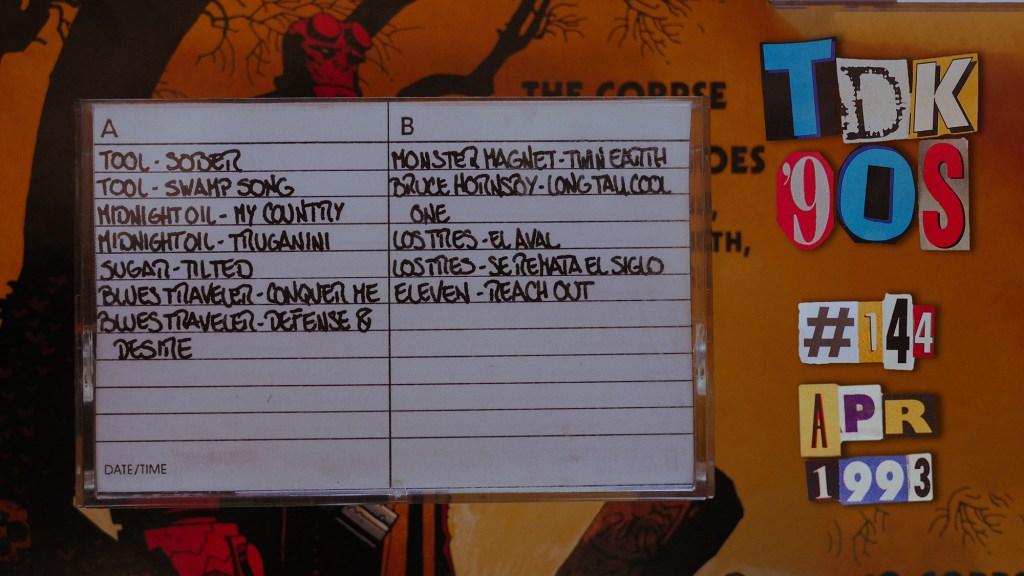 THE CORPSE
OES
TH,
A
TOOL - SOBER
TOOL - SWAMP SONG
MIDNIGHT OIL - MY COUNTRY
MIDNIGHT OIL - TRUGANINI
SUGAR - TILTED
BLUES TRAVELER - CONQUER ME
BLUES TRAVELER - DEFENSE &
DESIRE
DATE/TIME
B
MONSTER MAGNET - TWIN EARTH
BRUCE HORNSBY - LONG TALL COOL
ONE
LOS TRES - EL AVAL
LOS TRES - SE REMATA EL SIGLO
ELEVEN - REACH OUT
TDK
'90S
#144
APR
1993